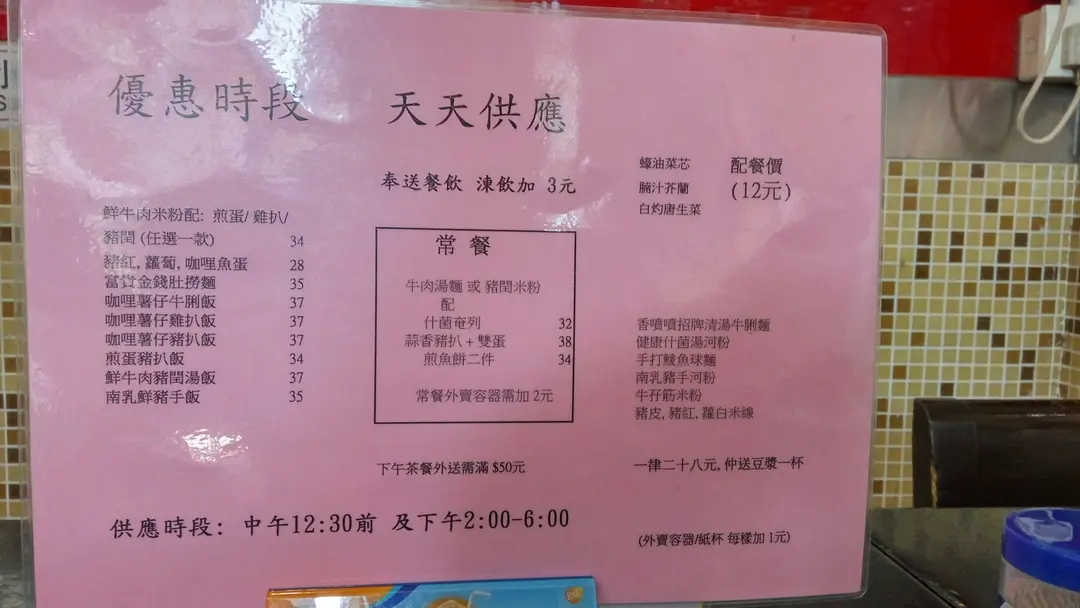 優惠時段
天天供應
奉送餐飲 涷飲加 3元
蠔油菜芯
腩汁芥蘭
白灼唐生菜
配餐價
(12元)
鮮牛肉米粉配: 煎蛋/ 雞扒/
豬閏 (任選一款) 34
豬紅, 蘿蔔, 咖哩魚蛋 28
富貴金錢肚撈麵 35
咖哩薯仔牛脷飯 37
咖哩薯仔雞扒飯 37
咖哩薯仔豬扒飯 37
煎蛋豬扒飯 34
鮮牛肉豬閏湯飯 37
南乳鮮豬手飯 35
常餐
牛肉湯麵 或 豬閏米粉
配
什菌奄列 32
蒜香豬扒 + 雙蛋 38
煎魚餅二件 34
常餐外賣容器需加 2元
香噴噴招牌清湯牛脷麵
健康什菌湯河粉
手打鯪魚球麵
南乳豬手河粉
牛孖筋米粉
豬皮, 豬紅, 蘿白米線
下午茶餐外送需滿 $50元
一律二十八元, 仲送豆漿一杯
供應時段: 中午12:30前 及下午2:00-6:00
(外賣容器/紙杯 每樣加 1元)